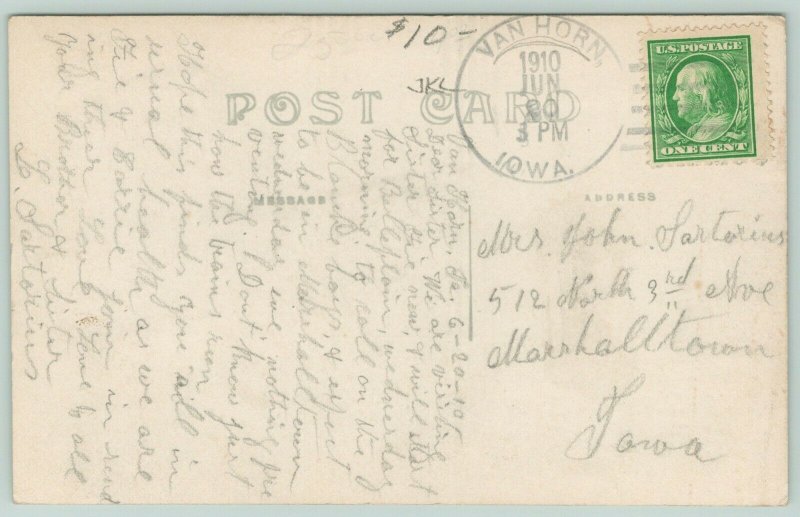 $10-
JKL
POST CARD
VAN HORN,
1910
JUN
20
3 PM
IOWA.
U.S. POSTAGE
ONE CENT
MESSAGE
ADDRESS
Mrs. John. Sartorius
512 North 3rd Ave
Marshalltown
Iowa
Van Horn, Ia. 6-20-10
Dear Sister: We are visiting
Sister now, & will start
for Belleplain, wednesday
morning to call on the
Blanche boys, & expect
to be in Marshalltown
wednesday eve nothing pre
venting. I Don't know just
how the trains run
Hope this finds you all in
usual health as we are
& Carrie join in send
ing their Love. Love to all
Your Brother & Sister
L. Sartorius